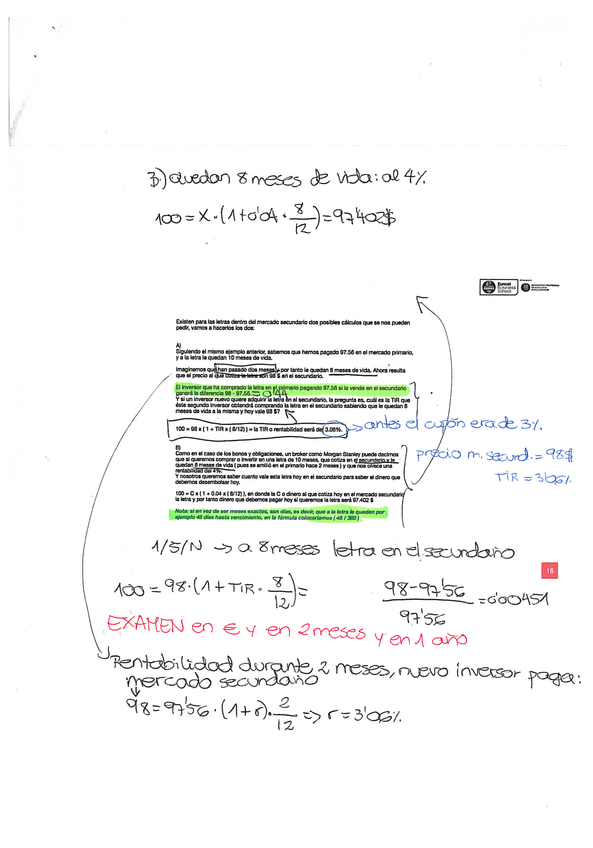 3.) Quedan 8 meses de vida: al 4%
100 = X · (1+0'04 · 8/12) = 97'402$
Euncet
Business
School
Existen para las letras dentro del mercado secundario dos posibles cálculos que se nos pueden
pedir, vamos a hacerlos los dos:
A)
Siguiendo el mismo ejemplo anterior, sabemos que hemos pagado 97.56 en el mercado primario,
y a la letra le quedan 10 meses de vida.
Imaginemos que han pasado dos meses y por tanto le quedan 8 meses de vida. Ahora resulta
que el precio al que cotiza la letra son 98 $ en el secundario.
El inversor que ha comprado la letra en el primario pagando 97.56 si la vende en el secundario
ganará la diferencia 98 - 97.56. = 0'44
Y si un inversor nuevo quiere adquirir la letra en el secundario, la pregunta es, cuál es la TIR que
éste segundo inversor obtendrá comprando la letra en el secundario sabiendo que le quedan 8
meses de vida a la misma y hoy vale 98 $?
100 = 98 x ( 1 + TIR x ( 8/12) ) = la TIR o rentabilidad será de 3.06%.
antes el cupón era de 3%.
B)
Como en el caso de los bonos y obligaciones, un broker como Morgan Stanley puede decirnos
que si queremos comprar o invertir en una letra de 10 meses, que cotiza en el secundario y le
quedan 8 meses de vida ( pues se emitió en el primario hace 2 meses ) y que nos ofrece una
rentabilidad del 4%.
Y nosotros queremos saber cuanto vale esta letra hoy en el secundario para saber el dinero que
debemos desembolsar hoy.
precio m. secund. = 98$
TIR = 3'06%
100 = C x ( 1 + 0.04 x ( 8/12) ), en donde la C o dinero al que cotiza hoy en el mercado secundario
la letra y por tanto dinero que debemos pagar hoy si queremos la letra será 97.402 $
Nota: si en vez de ser meses exactos, son días, es decir, que a la letra le queden por
ejemplo 45 días hasta vencimiento, en la fórmula colocaríamos ( 45 / 360 )
1/5/N → a 8 meses letra en el secundario
18
100 = 98 · (1 + TIR · 8/12) =
98-97'56/97'56 = 0'00451
EXAMEN en € y en 2 meses y en 1 año
Rentabilidad durante 2 meses, nuevo inversor paga:
mercado secundario
98 = 97'56 · (1+r) · 2/12 => r = 3'06%